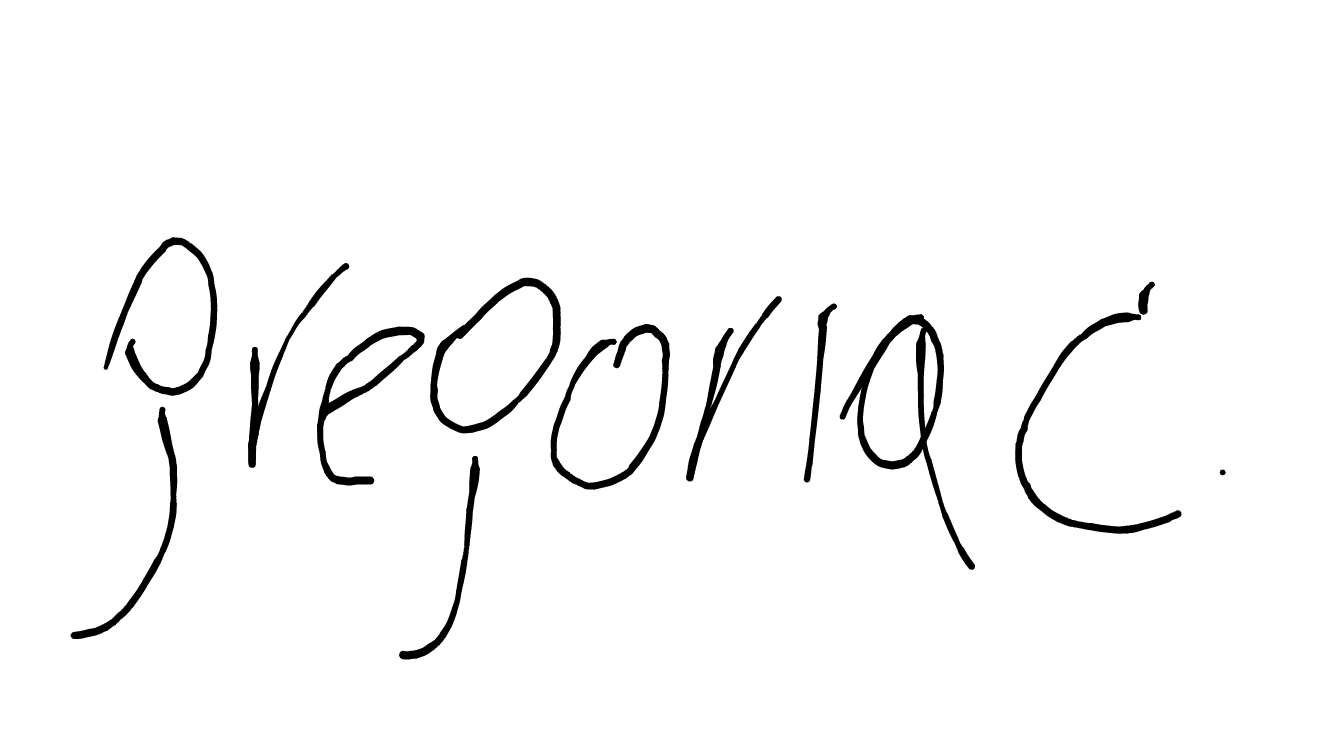 gregoria c.